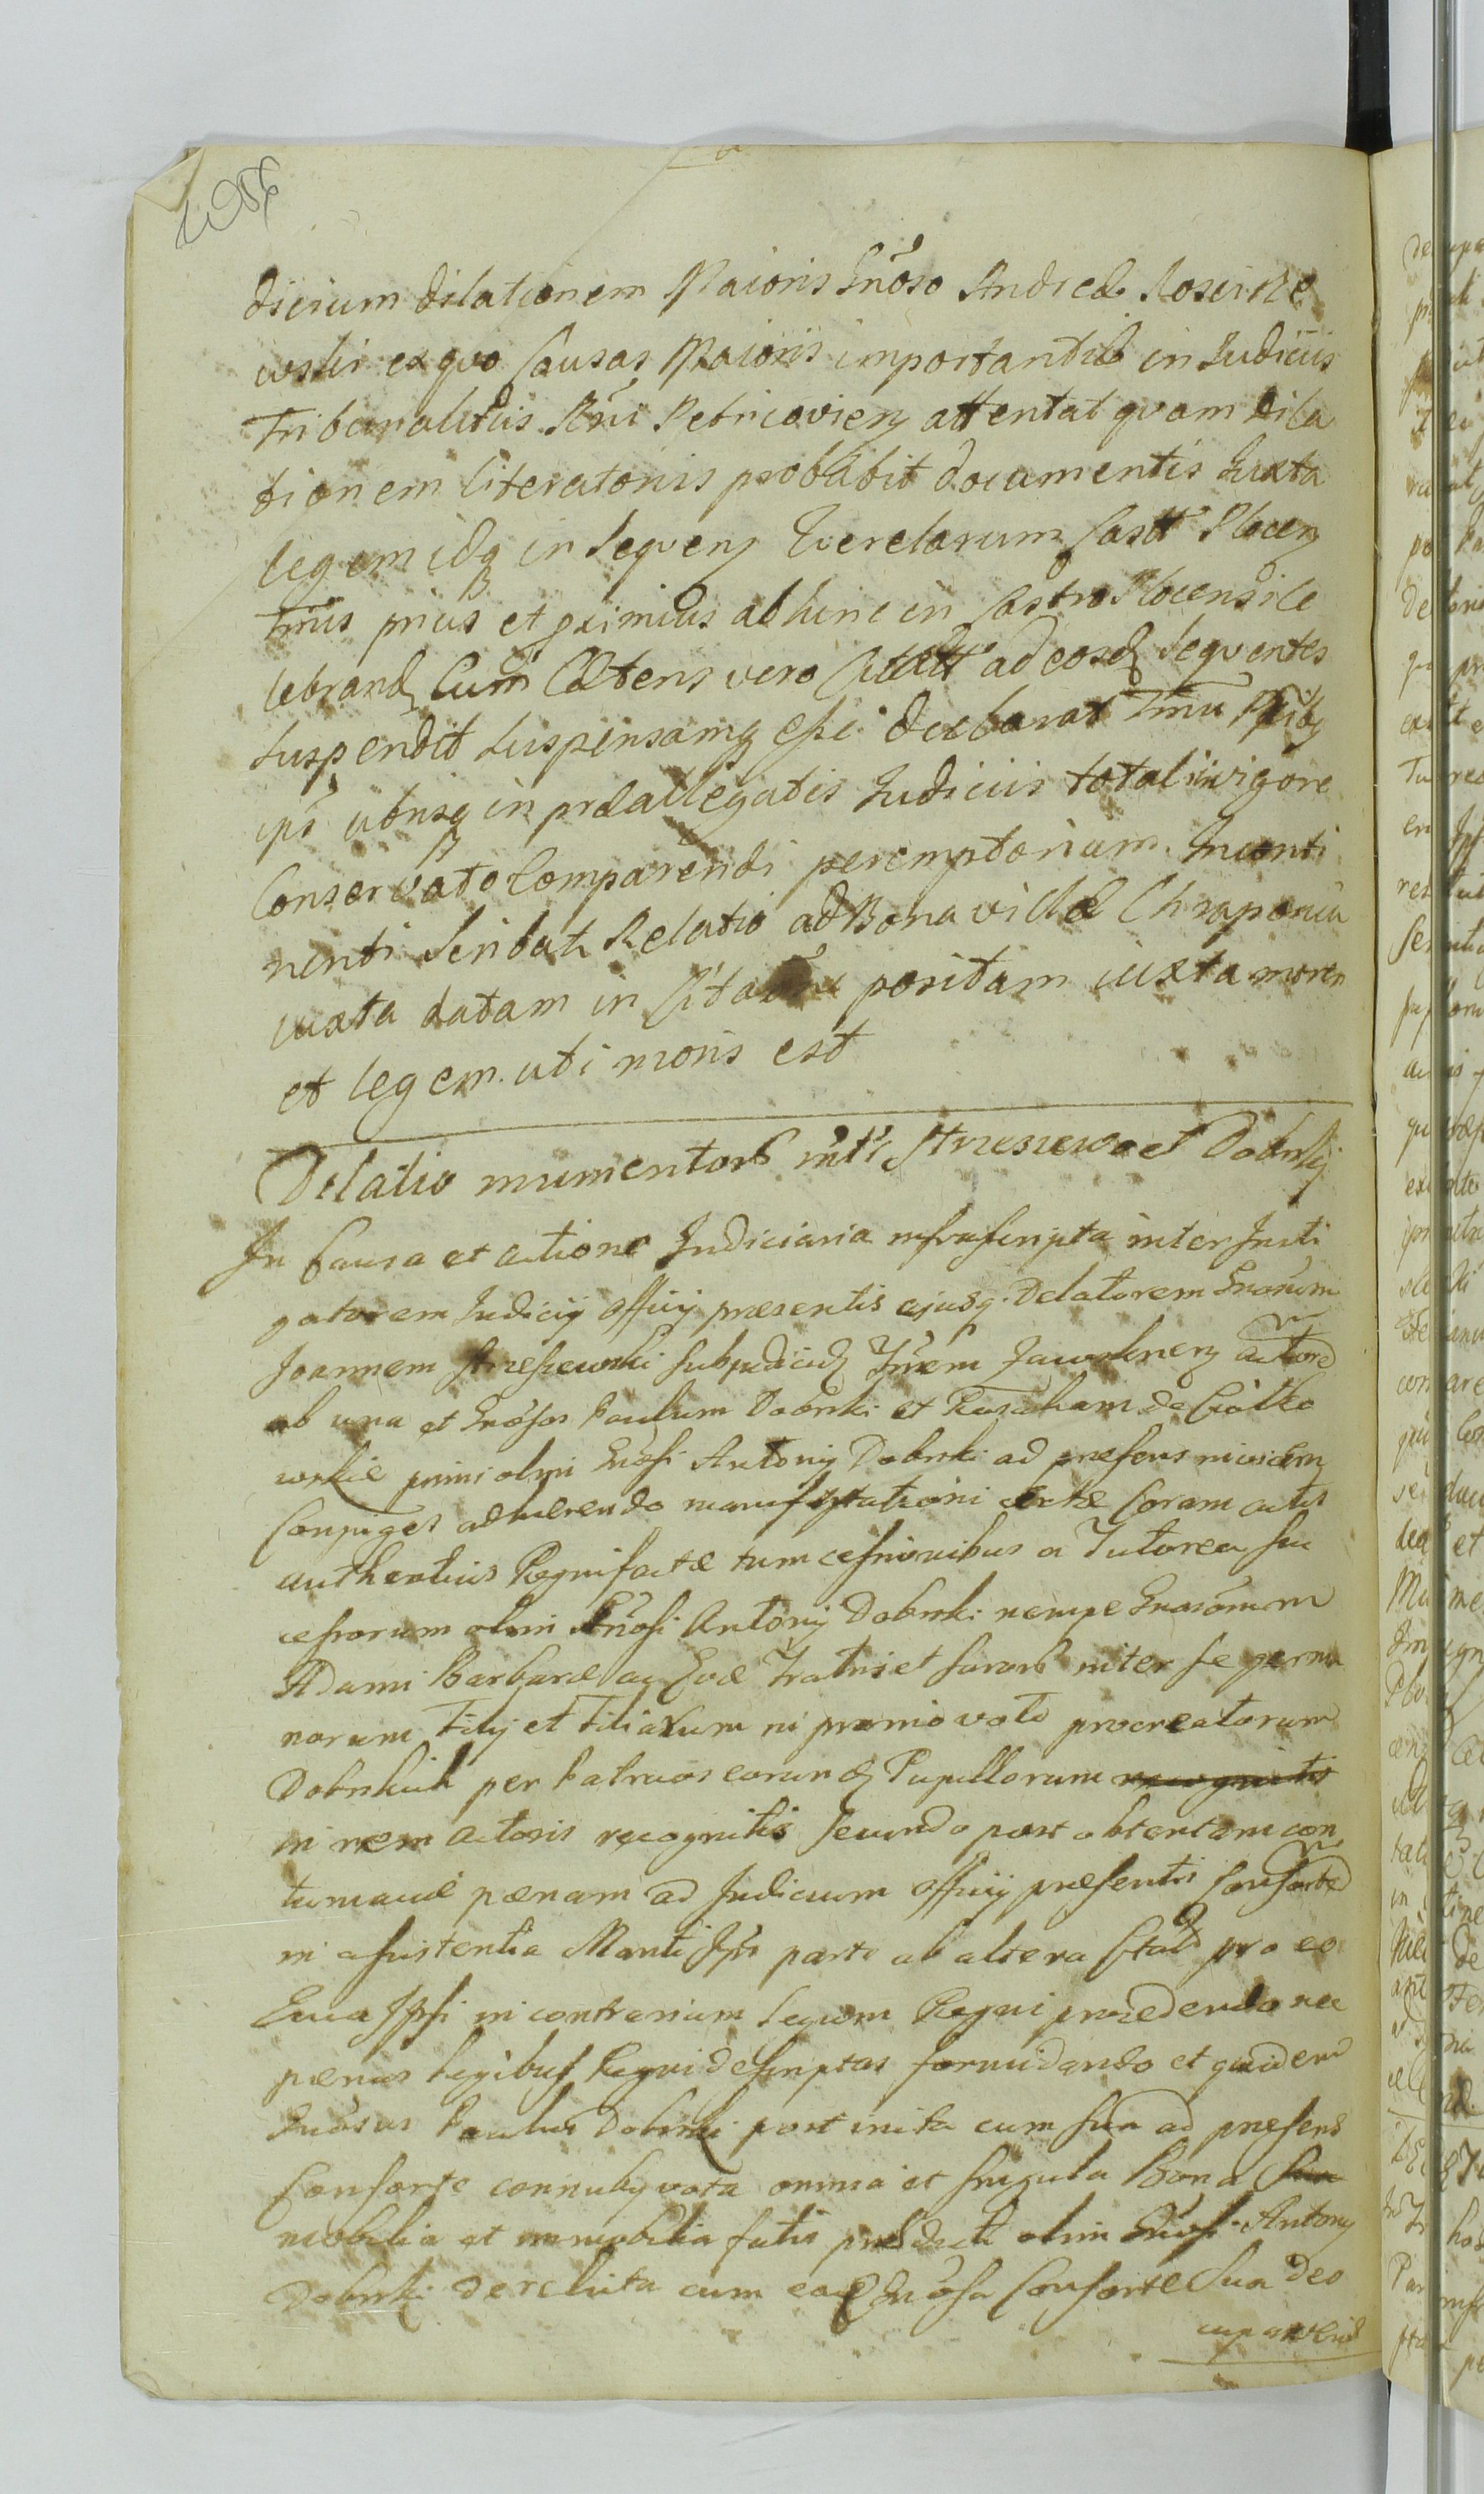 dicium dilationem Maioris Gnōso Andreæ Koscisze
wski ex quo Causas Maioris importantiæ in Judiciis
Tribunalitiis Rñi Petricovien attentat quam dila
tionem literatoriis probabit documentis Juxta
legem idq in seqven Qverelarum Castt Plocen
Tmis prius et primius ab hinc in Castro Plocensi ce
lebrand Cum Cæteris vero Citatt ad eosd seqventes
suspendit suspensamq esse declarat Tmū Ptibq
ipīs utrisq in præallegatis Judiciis totali in vigore
Conservato Comparendi peremptorium. Inconti
nenti scribatr Relatio ad Bona villæ Chraponia
iuxta datam in Citaōne positam iuxta morem
et legem uti moris est
Dilatio munimentorū intr Strzeszewo et Dobrskj
In Causa et actione Judiciaria infrascripta inter Insti
gatorem Judicij officij præsentis ejusq. Delatorem Gnōsum
Joannem Strzeszewski Subjudicē Trrēm Zawskrnen actore
ab una et Gnōsos Paulum Dobrski et Rosaliam de Ciołko
wskie primi olim Gnōsi Antonij Dobrski ad præsens invicem
Conjuges adhærendo manifestationi certæ Coram actis
authenticis Regni factæ tum cessionibus a Tutorea suc
cessorum olim Gnōsi Antonij Dobrski nempe Gnosōrum
Adami Barbaræ ac Evæ Fratris et sororū inter se germa
norum Filij et Filiarum in primo voto procreatorum
Dobrskich per Patruos eorund Pupillorum recognitis
in rem actoris recognitis secundo post obtentam con
tumaciæ pænam ad Judicium officij præsentis Consorte
in assistentia Mariti Ipīs parte ab altera Citatos pro eo
Quia Ipsi in contrarium Legum Regni procedendo nec
pænas legibus Regni descriptas formidando et quidem
Gnōsus Paulus Dobrski post inita cum sua ad præsens
Consorte connubij vota omnia et singula Bona sua
mobilia et immobilia fatis prædicti olim Gnōsi Antonij
Dobrski derelicta cum eadē Gnōsa Consorte Sua deo
cupaverit